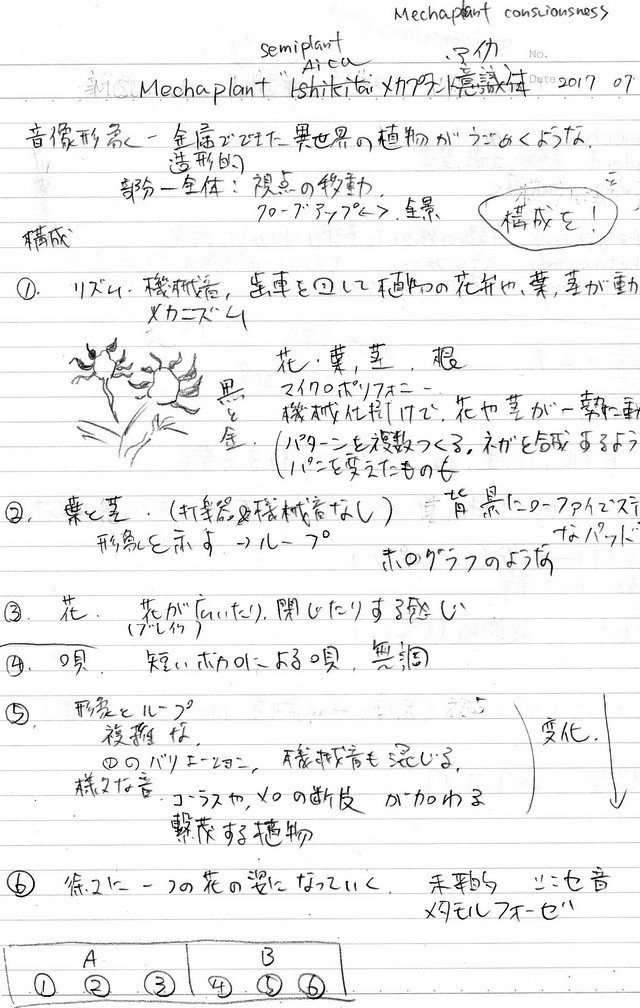 Mechaplant consciousness
semiplant
Aica アイカ
No.
Mechaplant "Ishikitai メカプラント意識体 Date 2017 07
音像形象 ー 金属でできた異世界の植物がうごめくような
造形的
部分ー全体：視点の移動
クローズアップ<->全景
構成を！
構成
① リズム・機械音，歯車を回して植物の花弁や、葉，茎が動
メカニズム
花・葉，茎，根
マイクロポリフォニー
黒と金
機械仕掛けで、花や茎が一勢に動
(パターンを複数つくる。ネガを合成するよう
(パンを変えたものも
② 葉と茎．(打楽器&機械音なし) 背景にローファイでステ
形象を示す→ループ なパッド
ホログラフのような
③ 花．花が広いたり，閉じたりする感じ
(ブレイク)
④ 唄 短いボカロによる唄，無調
⑤ 形象とループ
複雑な，
①のバリエーション，機械音も混じる，
変化．
様々な音
コーラスや，メロの断片 が加わる
繫茂する植物
⑥ 徐々に一つの花の姿になっていく 未来的 シンセ音
メタモルフォーゼ
A B
① ② ③ ④ ⑤ ⑥